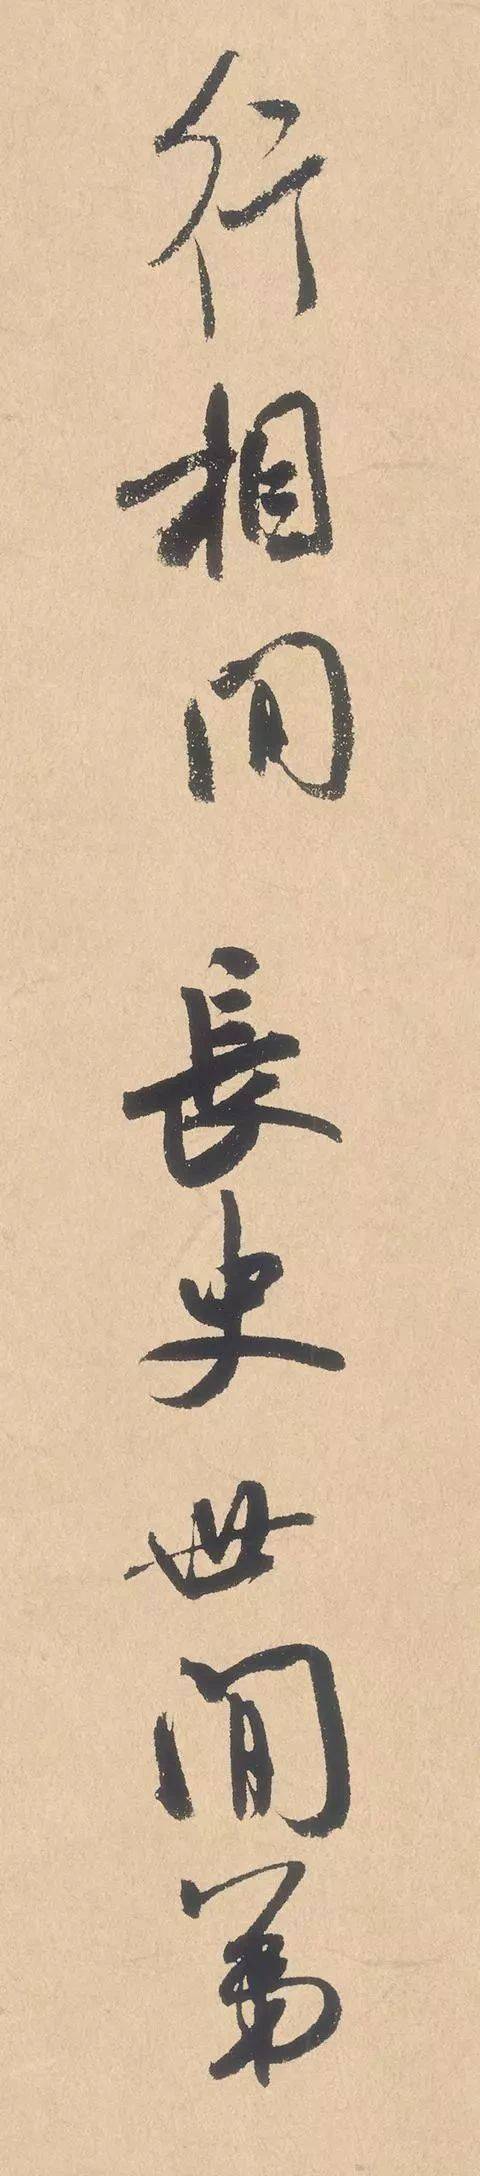 行相間長史世間第